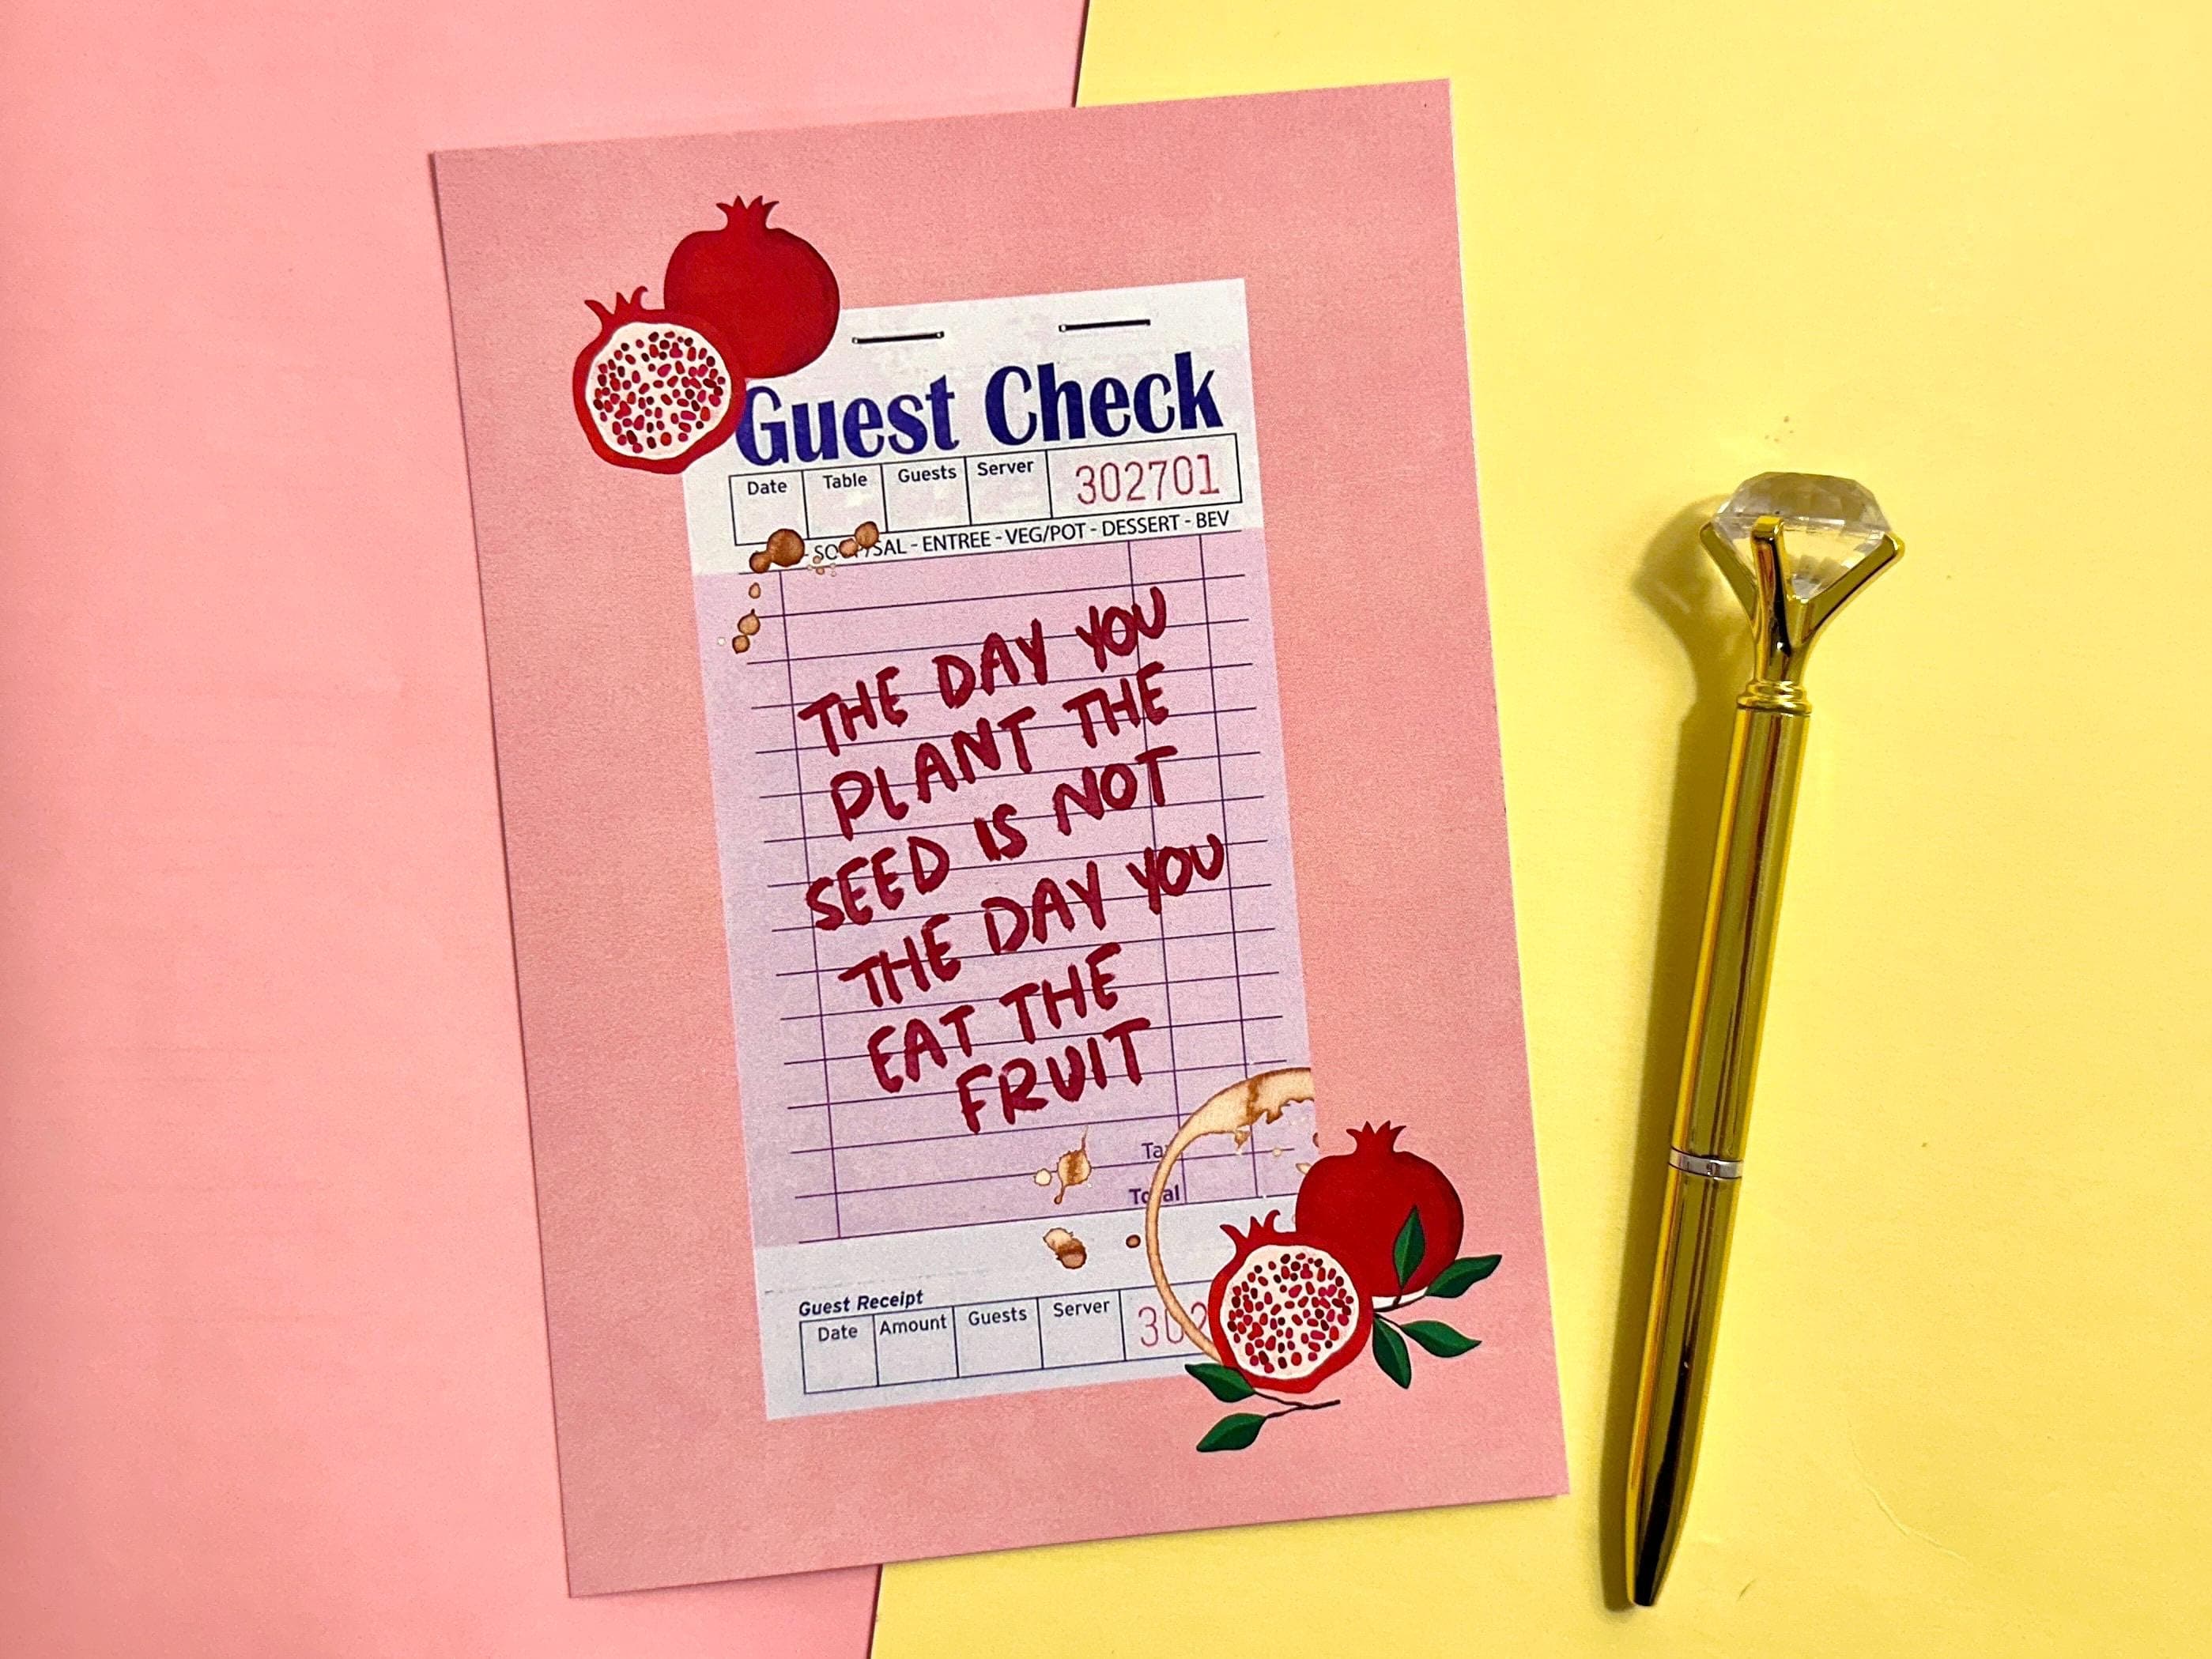 Guest Check
Date Table Guests Server 302701
SAL - ENTREE - VEG/POT - DESSERT - BEV
THE DAY YOU
PLANT THE
SEED IS NOT
THE DAY YOU
EAT THE
FRUIT
Tax
Total
Guest Receipt
Date Amount Guests Server 302